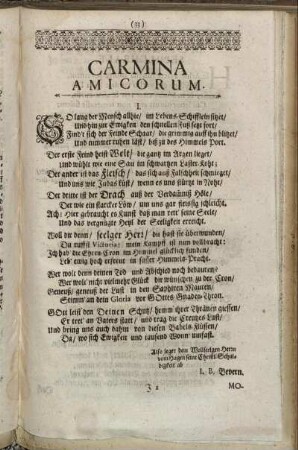 (11)
CARMINA
AMICORUM.
I.
SO lang der Mensch allhie/ im Lebens-Schifflein sitzet/
Und hin zur Ewigkeit den schnellen Fuß fort setzt/
Find't sich der Feinde Schaar/ die grimmig auff ihn blitzet/
Und nimmer ruhen läst/ biß zu des Himmels Port.
Der erste Feind heist Welt/ die gantz im Argen lieget/
Und mühlt wie eine Sau im schwartzen Laster-Koht;
Der ander ist das Fleisch/ das sich auß Falschheit schmieget/
Und uns wie Judas küst/ wenn es uns stürtzt in Noht;
Der dritte ist der Drach auß der Verdamniß Höle/
Der wie ein starcker Löw/ um uns gar streitig schleicht.
Ach! Hier gebraucht es Kunst daß man rett' seine Seele/
Und das vergnügte Heyl der Seeligkeit erreicht.
Woll dir denn/ seelger Herr! du hast sie überwunden/
Du ruffst Victoria: mein Kampff ist nun vollbracht:
Ich hab' die Ehren-Cron im Himmel glücklich funden/
Leb' ewig hoch erfreut in süsser Himmels-Pracht.
Wer wolt denn deinen Tod und Abschied noch betauren/
Wer wolt nicht vielmehr Glück dir wünschen zu der Cron/
Geneuß/ geneuß der Lust in den Saphiren Mauren/
Stimm' an dein Gloria vor GOttes Gnaden-Thron.
GOtt leist den Deinen Schutz/ hemm ihrer Thränen giessen/
Er tret' an Vaters statt/ und trag die Creutzes-Last/
Und bring uns auch dahin von diesen Babels Flüssen/
Da/ wo sich Ewigkeit und tausend Wonn umfast.
Also
vom Hagen seine Christl. Schul-
digkeit ab
L. B. Bevern.
MO-